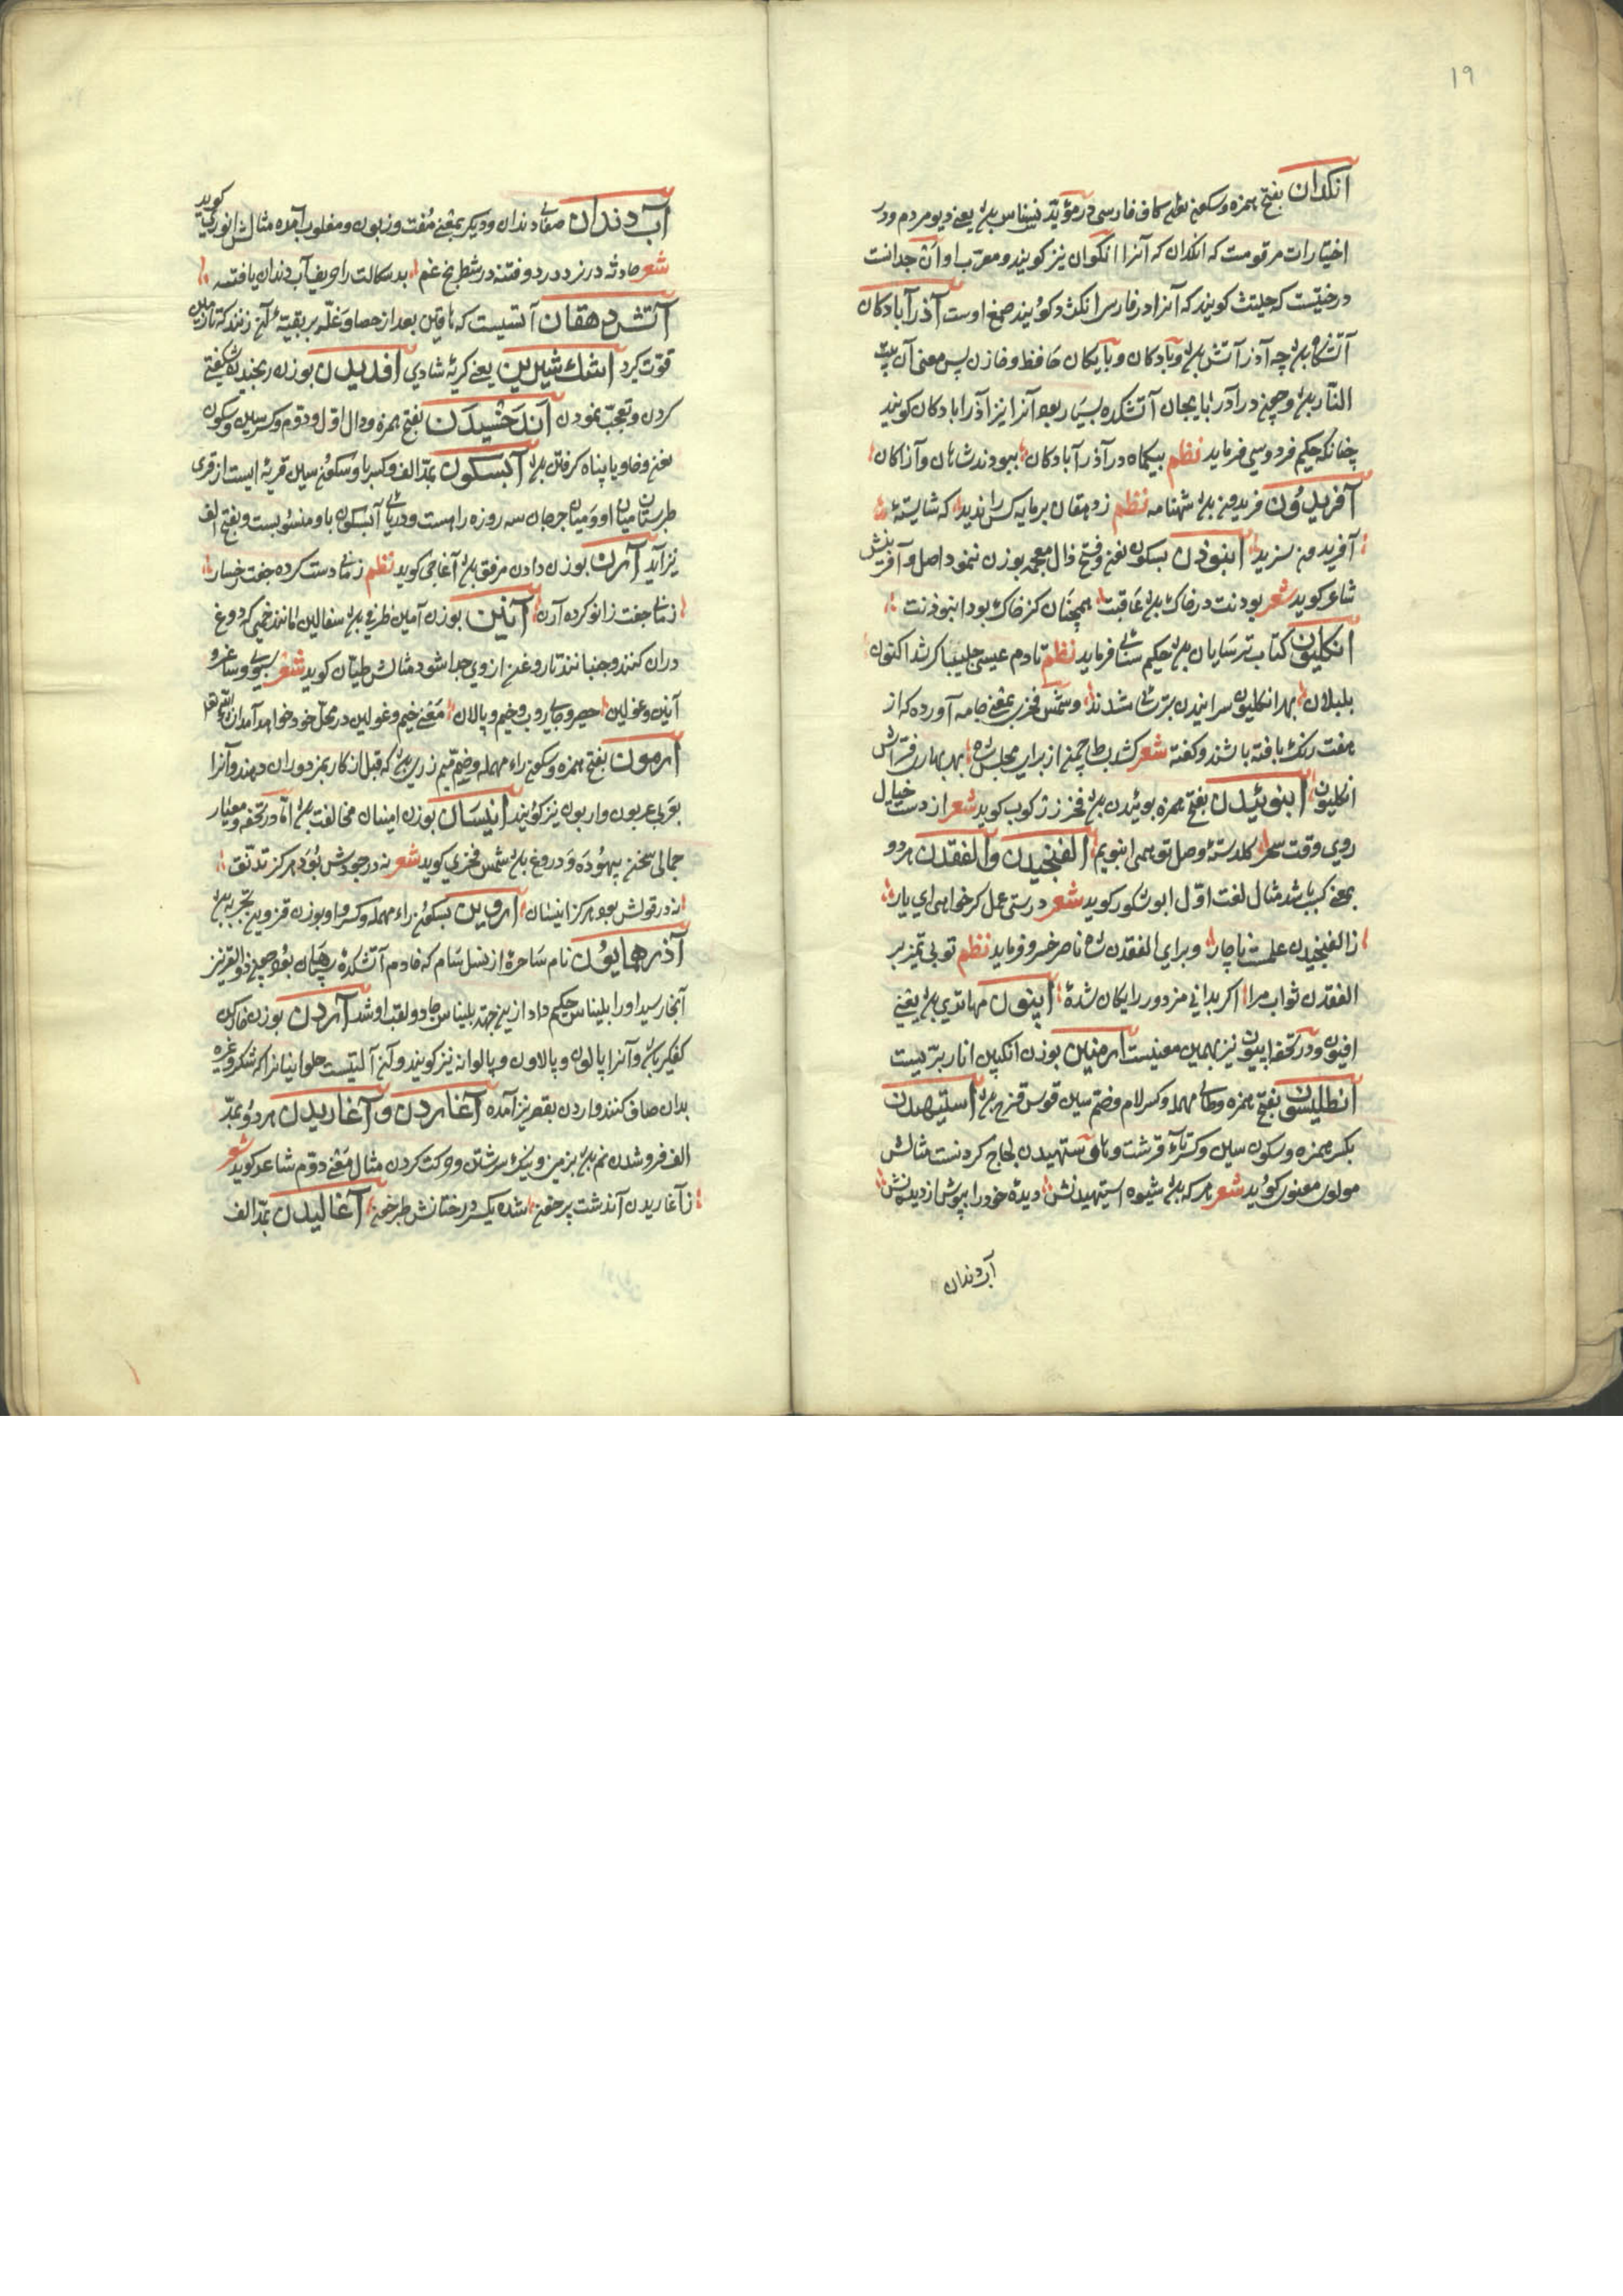 ۱۹
انکدان بفتح همزه وسکون نون وکاف فارسی در مؤید نسناس باشد یعنی دیو مردم ودر
اختیارات مرقومست که انکدان که آنرا انکوان نیز کویند ومعرب او انجدانست
درختیست که حلتیث کویند که آنرا در فارسی انکژد کویند صمغ اوست آذرآبادکان
آتشکاه باشد چه آذر آتش باشد وبادکان وبایکان حافظ وخازن پس معنی آن بیت
النار باشد وچون در آذرابایجان آتشکده بسیار بود آنرا نیز آذرابادکان کویند
چنانکه حکیم فردوسی فرماید نظم بیکماه در آذرآبادکان ببودند شاهان وآزادکان
آفریدون فریدون باشد شهنامه نظم ز دهقان پرمایه کس را ندید که شایسته
آفریدون سزید انبوذن بسکون نون وفتح ذال معجمه بوزن نمود اصل وآفرینش
شاعر کوید شعر بودنت در خاک باشد عاقبت همچنان کز خاک بود انبوذنت
انکلیون کتاب ترسایان باشد حکیم سنائی فرماید نظم تا دم عیسی چلیپاکر شد اکنون
بلبلان بهر انکلیون سراییدن ترسا شدند وشمس فخری بمعنی جامه آورده که از
هفت رنک بافته باشند وکفته شعر کشد بساط چمن از برای مجلس شاه بهر بهار فراش
انکلیون انبوئیدن بفتح همزه بوئیدن باشد فخر زرکوب کوید شعر از دست خیال
روی وقت سحر کلدسته وصل تو همی انبویم الفنجیدن والفقدن هر دو
بمعنی کسب باشد مثال لغت اول ابوشکور کوید شعر درستی عمل کر خواهی ای یار
ز الفنجیدن علمست ناچار وبرای الفقدن شاه ناصر خسرو فرماید نظم تو بی تمیز بر
الفقدن ثواب مرا اکر بدانی مزدور رایکان شده اپیون مهاتری باشد یعنی
افیون ودر تحفه ابیون نیز بهمین معنیست ارمنین بوزن انکبین انار بریست
انطلیسون بفتح همزه وطای مهمله وکسر لام وضم سین قوس قزح باشد استیهیدن
بکسر همزه وسکون سین وکسر تاء قرشت وهای ستهیدن لجاج کردنست مثالش
مولوی معنوی کوید شعر هر که باشد شیوه استیهیدنش دیده خود را بپوش از دیدنش
آبدندان
آب دندان صفای دندان ودیکر بمعنی مفت وزبون ومغلوب آمده مثالش انوری کوید
شعر حادثه در نرد درد وفتنه در شطرنج غم بدسکالت را حریف آب دندان یافته
آتش دهقان آتشیست که دهاقین بعد از حصاد غله بر بقیه آن زنند که تا زمین
قوت کیرد اشک شیرین یعنی کریه شادی افدیدن بوزن رنجیدن شکفتی
کردن وتعجب نمودن اندخسیدن بفتح همزه ودال اول ودوم وکسر سین وسکون
نون وخا ویا پناه کرفتن باشد آبسکون بمد الف وکسر با وسکون سین قریه ایست از قری
طبرستان میان او ومیان جرجان سه روزه راهست ودریای آبسکون باو منسوبست وبفتح الف
نیز آید آرن بوزن دادن مرفق باشد آغاجی کوید نظم زمانی دست کرده جفت رخسار
زمانی جفت زانو کرده آرن آنین بوزن آمین ظرفی باشد سفالین مانند خمی که دوغ
دران کنند وجنبانند تا روغن از وی جدا شود مثالش طیان کوید شعر سبوی وساغر و
آنین وغولین حصیر وجای روب وخیم وپالان معنی خیم وغولین در محل خود خواهد آمد ان شاء الله تعالی
ارمون بفتح همزه وسکون راء مهمله وضم میم زری باشد که قبل از کار بمزدوران دهند وآنرا
بعربی عربون واربون نیز کویند انیسان بوزن امینان مخالفت باشد اما در تحفه ومعیار
جمالی سخن بیهوده ودروغ باشد شمس فخری کوید شعر نه در جودش بود هرکز تدنق
نه در قولش بود هرکز انیسان اروین بسکون راء مهمله وکسر واو بوزن قزوین تجربه باشد
آذرهمایون نام ساحره از نسل سام که خادم آتشکده سپاهان بود چون ذوالقرنین
آنجا رسید او را بلیناس حکیم داد از این جهت بلیناس جادو لقب او شد آردن بوزن خاردن
کفکیر باشد وآنرا پالون وپالاون وپالوانه نیز کویند وآن آلتیست حلوائیانرا که شکر وغیره
بدان صاف کنند واردن بقصر نیز آمده آغاردن وآغاریدن هر دو بمد
الف فروشدن نم باشد بزمین ونیک سرشتن وحرکت کردن مثال معنی دوم شاعر کوید شعر
ز آغاریدن آن دشت پرخون شده یکسر درختانش طبرخون آغالیدن بمد الف